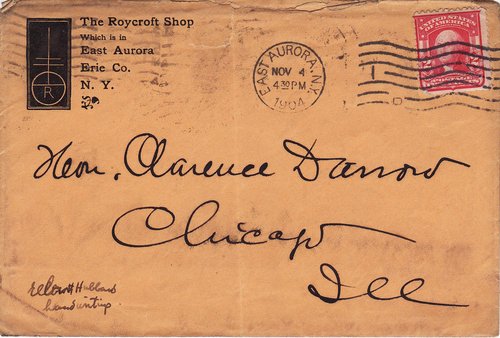 The Roycroft Shop
Which is in
East Aurora
Erie Co.
N. Y.
R
EAST AURORA, N.Y.
NOV 4
4 30 PM
1904
UNITED STATES OF AMERICA
Hon. Clarence Darrow
Chicago
Ill
Elbert Hubbard
handwriting